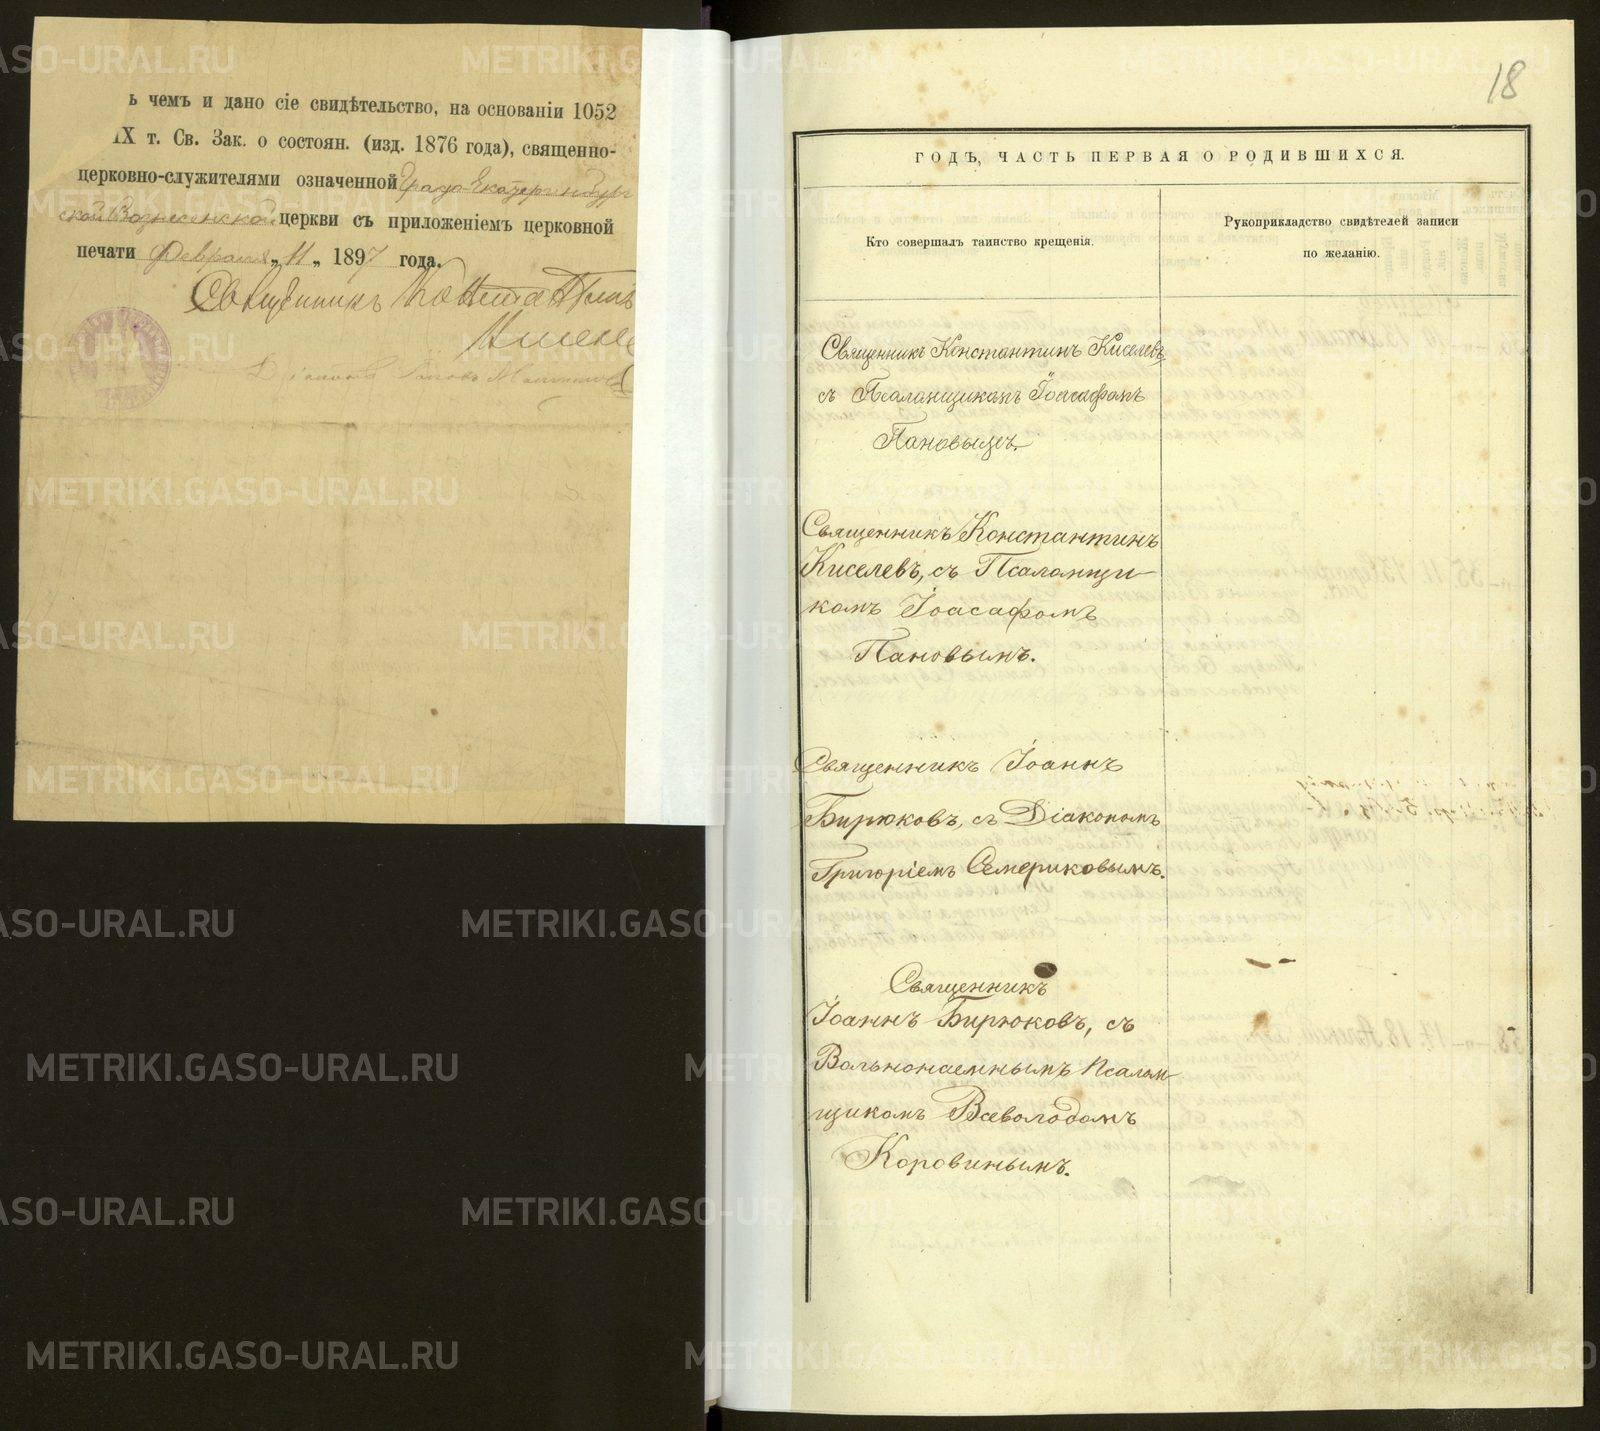 ь чемъ и дано сіе свидѣтельство, на основаніи 1052
IX т. Св. Зак. о состоян. (изд. 1876 года), священно-
церковно-служителями означенной Градо-Екатеринбург
ской Вознесенской церкви съ приложеніемъ церковной
печати Февраля „11„ 1897 года.
Священникъ Константинъ
18
ГОДЪ, ЧАСТЬ ПЕРВАЯ О РОДИВШИХСЯ.
Кто совершалъ таинство крещенія.
Рукоприкладство свидѣтелей записи
по желанію.
Священникъ Константинъ Киселевъ
съ Псаломщикомъ Іоасафомъ
Пановымъ.
Священникъ Константинъ
Киселевъ, съ Псаломщи-
комъ Іоасафомъ
Пановымъ.
Священникъ Іоаннъ
Бирюковъ, съ Діакономъ
Григоріемъ Семериковымъ.
Священникъ
Іоаннъ Бирюковъ, съ
Вольнонаемнымъ Псалом-
щикомъ Всеволодомъ
Коровинымъ.
METRIKI.GASO-URAL.RU